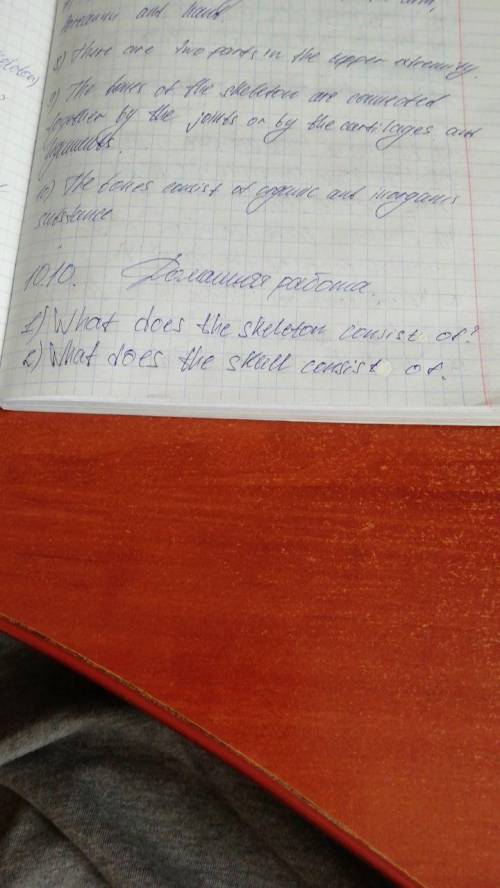 forearm and hand
8) There are two parts in the upper extremity.
9) The bones of the skeleton are connected
together by the joints or by the cartilages and
ligaments.
10) The bones consist of organic and inorganic
substance
10.10. Домашняя работа.
1) What does the skeleton consist of?
2) What does the skull consist of.